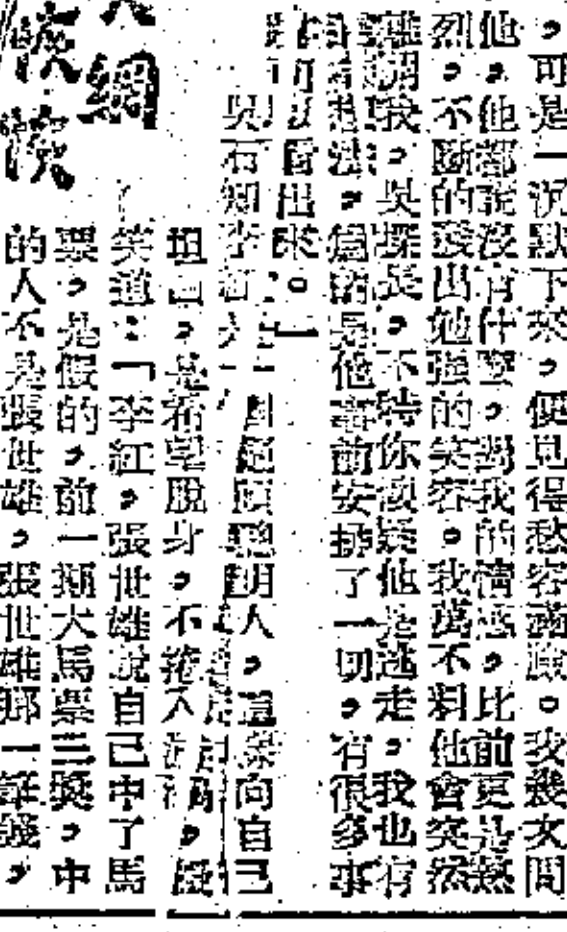 ，可是一沉默下來，便見得愁容滿臉。我幾次問
他，他都說沒有什麼，對我的情感，比前更是熱
烈，不斷的發出勉強的笑容。我萬不料他會突然
離開我，吳探長，不特你懷疑他是逃走，我也有
這想法，為的是他事前安排了一切，有很多事
可以看出來。」
吳石知李紅是一個絕頂聰明人，這樣向自己
坦白，是希望脫身，不捲入漩渦，便
笑道：「李紅，張世雄說自己中了馬
票，是假的，前一期大馬票三獎，中
的人不是張世雄，張世雄那一筆錢，
網